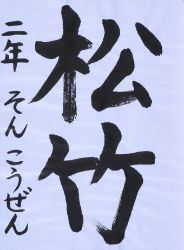 松竹
二年 そん こうぜん